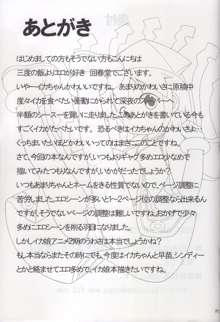 あとがき
はじめましての方もそうでない方もこんにちは
三度の飯よりエロが好き 回春堂でございます。
いやーイカちゃんかわいいですね。あまりのかわいさに原稿中
度々イカを食べたい衝動にかられて深夜の
半額のシースーを買いに走りました。このあとがきを書いている今も
すごくイカがたべたいです。 恐るべきはイカちゃんのかわいさよ…
くっちまいたいほどかわいいってのはまさにこのことですね。
さて、今回の本なんですが、いつもよりギャグ多めエロなりなめで
描いてみたつもりなんですが、いかがだったでしょうか?
いつもあまりちゃんとネームをきる性質でないので、ページ調整に
苦労しました。エロシーンが多いと1~2ページ位の調整なら出来るん
ですが、そうでないページの調整は難しいですね。おかげで少々
多めにエロシーンを削る羽目になりました。
しかしイカ娘アニメ2期のうわさは本当でしょうかね?
もし本当ならまたその時にでも、今度はイカちゃんと早苗、シンディー
とか絡ませてエロ多めで、エロイカ娘本描きたいですね。